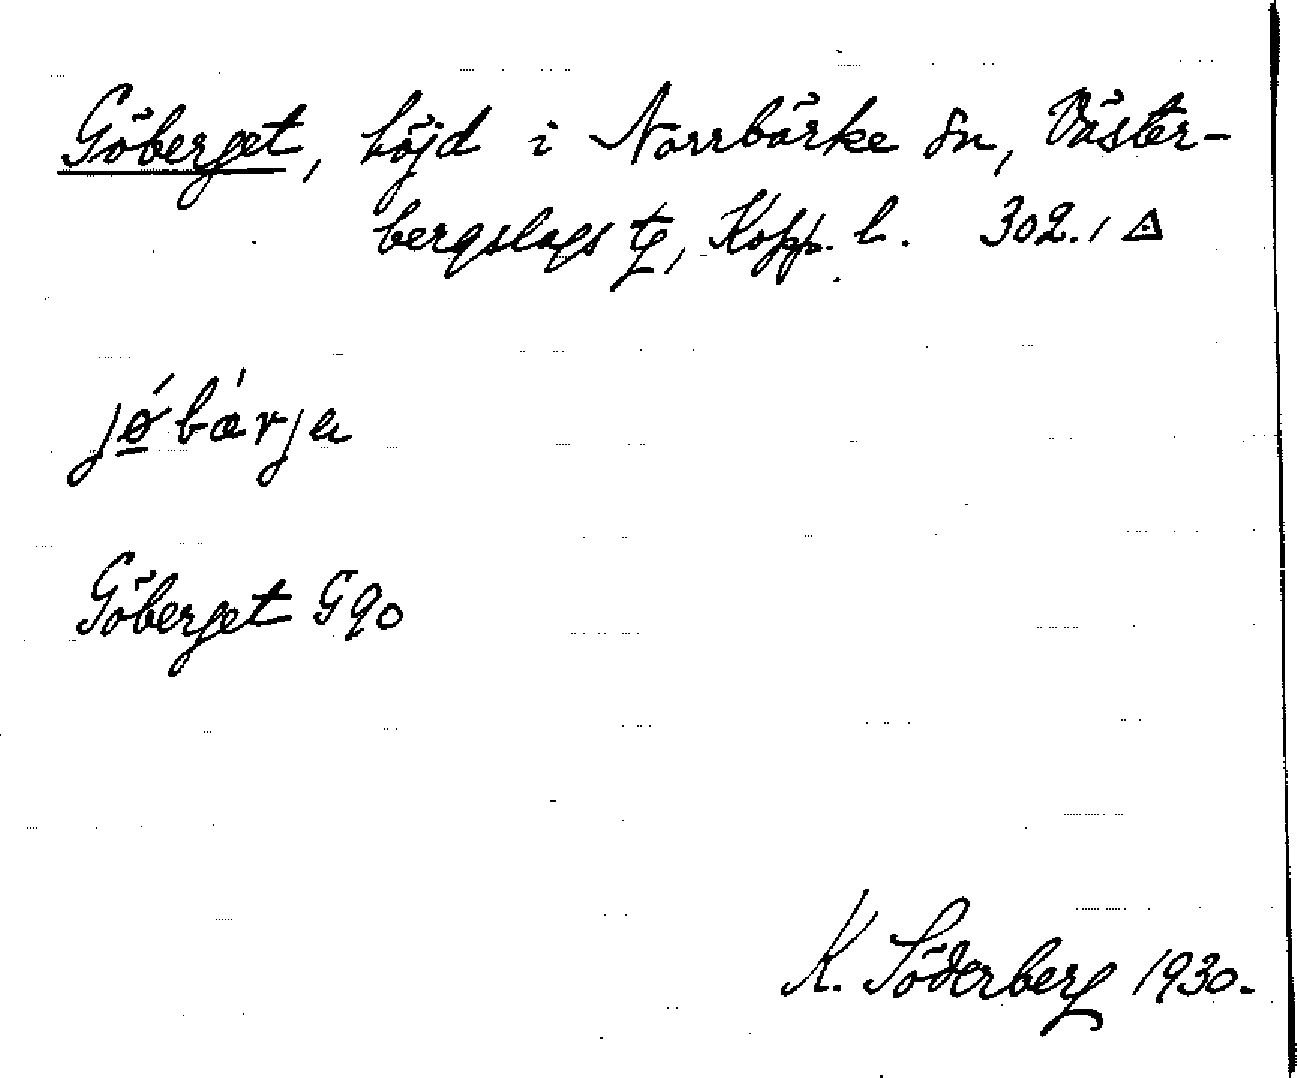 Göberget, höjd i Norrbärke sn, Väster-
bergslags tg, Kopp. l. 302.1 △
jǿbæ̀rja
Göberget G 90
K. Söderberg 1930.